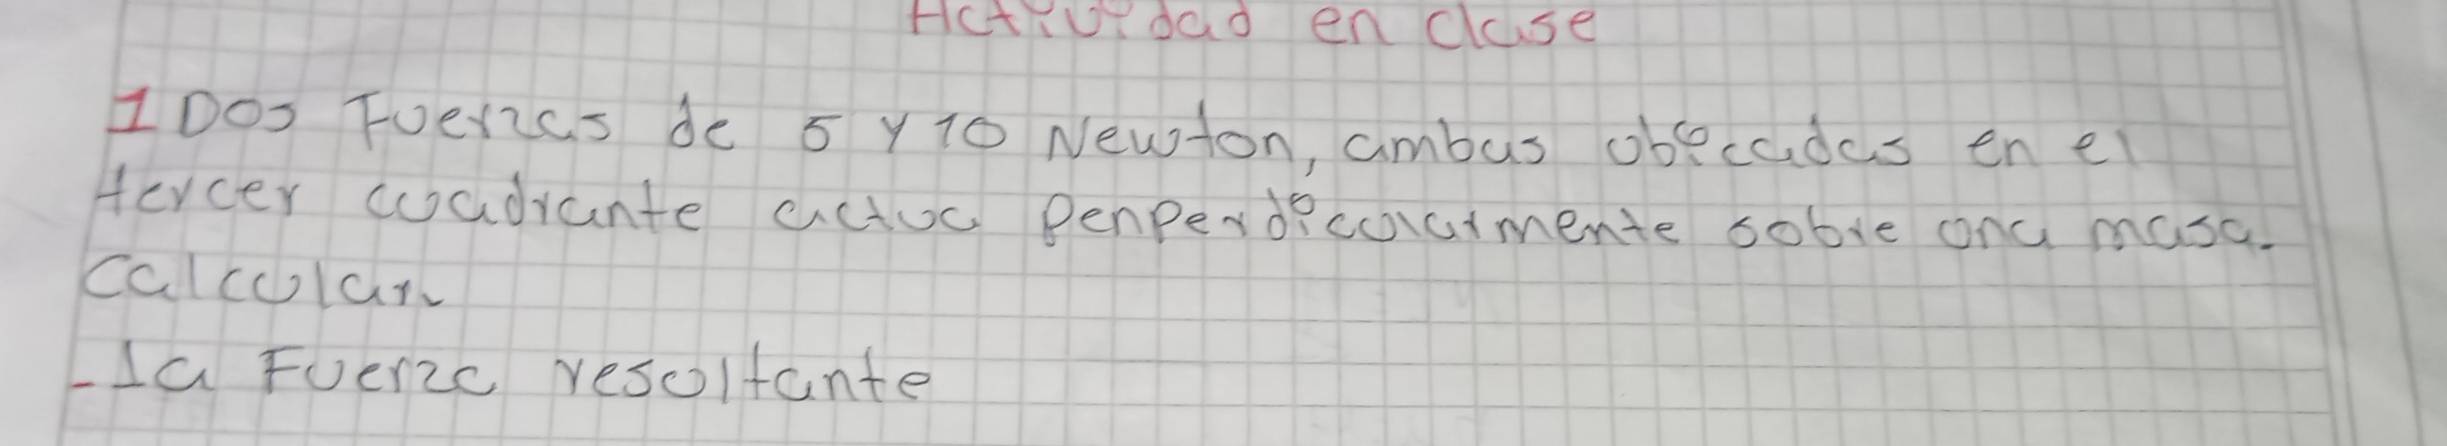 Actividad en clase
1 Dos Fuerzas de 5 y 10 Newton, ambas obicadas en el
tercer cuadrante actua penperdicularmente sobre una masa.
Calcular.
-la Fuerza resultante